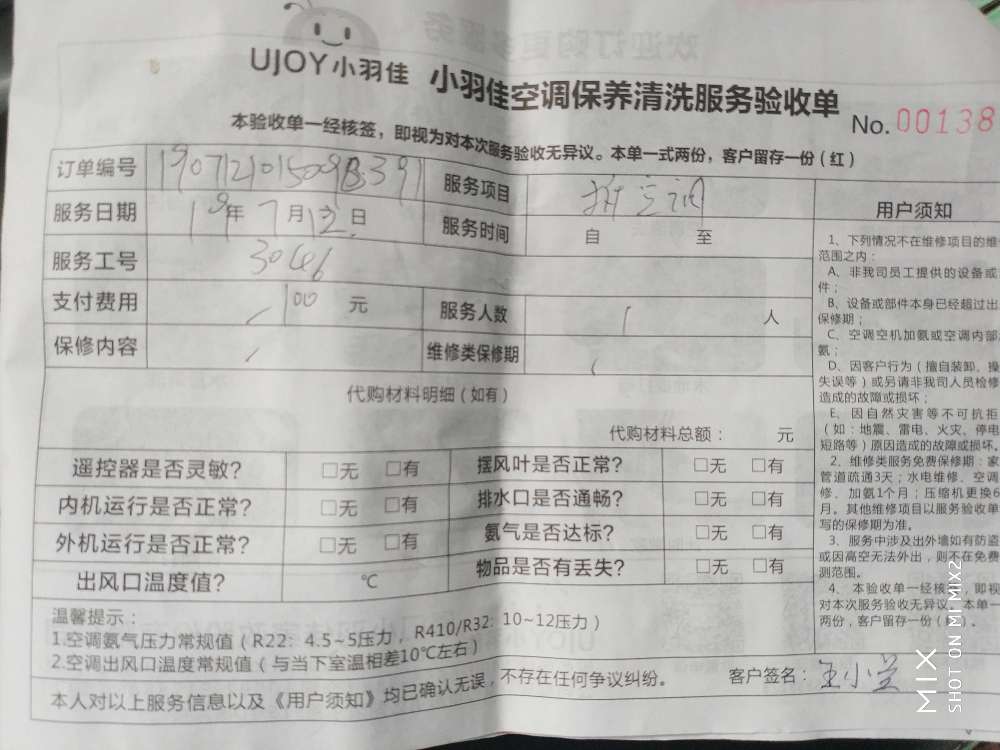 UJOY小羽佳 小羽佳空调保养清洗服务验收单
No. 00138
本验收单一经核签，即视为对本次服务验收无异议。本单一式两份，客户留存一份（红）
订单编号 服务项目 拆空调
服务日期 19年7月12日 服务时间 自 至
服务工号 3046
支付费用 100 元 服务人数 1 人
保修内容 / 维修类保修期
代购材料明细（如有）
代购材料总额： 元
遥控器是否灵敏? □无 □有 摆风叶是否正常? □无 □有
内机运行是否正常? □无 □有 排水口是否通畅? □无 □有
外机运行是否正常? □无 □有 氨气是否达标? □无 □有
出风口温度值? ℃ 物品是否有丢失? □无 □有
温馨提示：
1.空调氨气压力常规值（R22：4.5~5压力，R410/R32：10~12压力）
2.空调出风口温度常规值（与当下室温相差10℃左右）
本人对以上服务信息以及《用户须知》均已确认无误，不存在任何争议纠纷。 客户签名：
用户须知
1、下列情况不在维修项目的维
范围之内：
A、非我司员工提供的设备或
件；
B、设备或部件本身已经超过出
保修期；
C、空调空机加氨或空调内部
氨；
D、因客户行为（擅自装卸、操
失误等）或另请非我司人员检修
造成的故障或损坏；
E、因自然灾害等不可抗拒
（如：地震、雷电、火灾、停电
短路等）原因造成的故障或损坏。
2、维修类服务免费保修期：家
管道疏通3天；水电维修、空调
修、加氨1个月；压缩机更换6
月。其他维修项目以服务验收单
写的保修期为准。
3、服务中涉及出外墙如有防盗
或因高空无法外出，则不在免费
测范围。
4、本验收单一经核，即视
对本次服务验收无异议。本单一
两份，客户留存一份（）。
MIX
SHOT ON MI MIX2